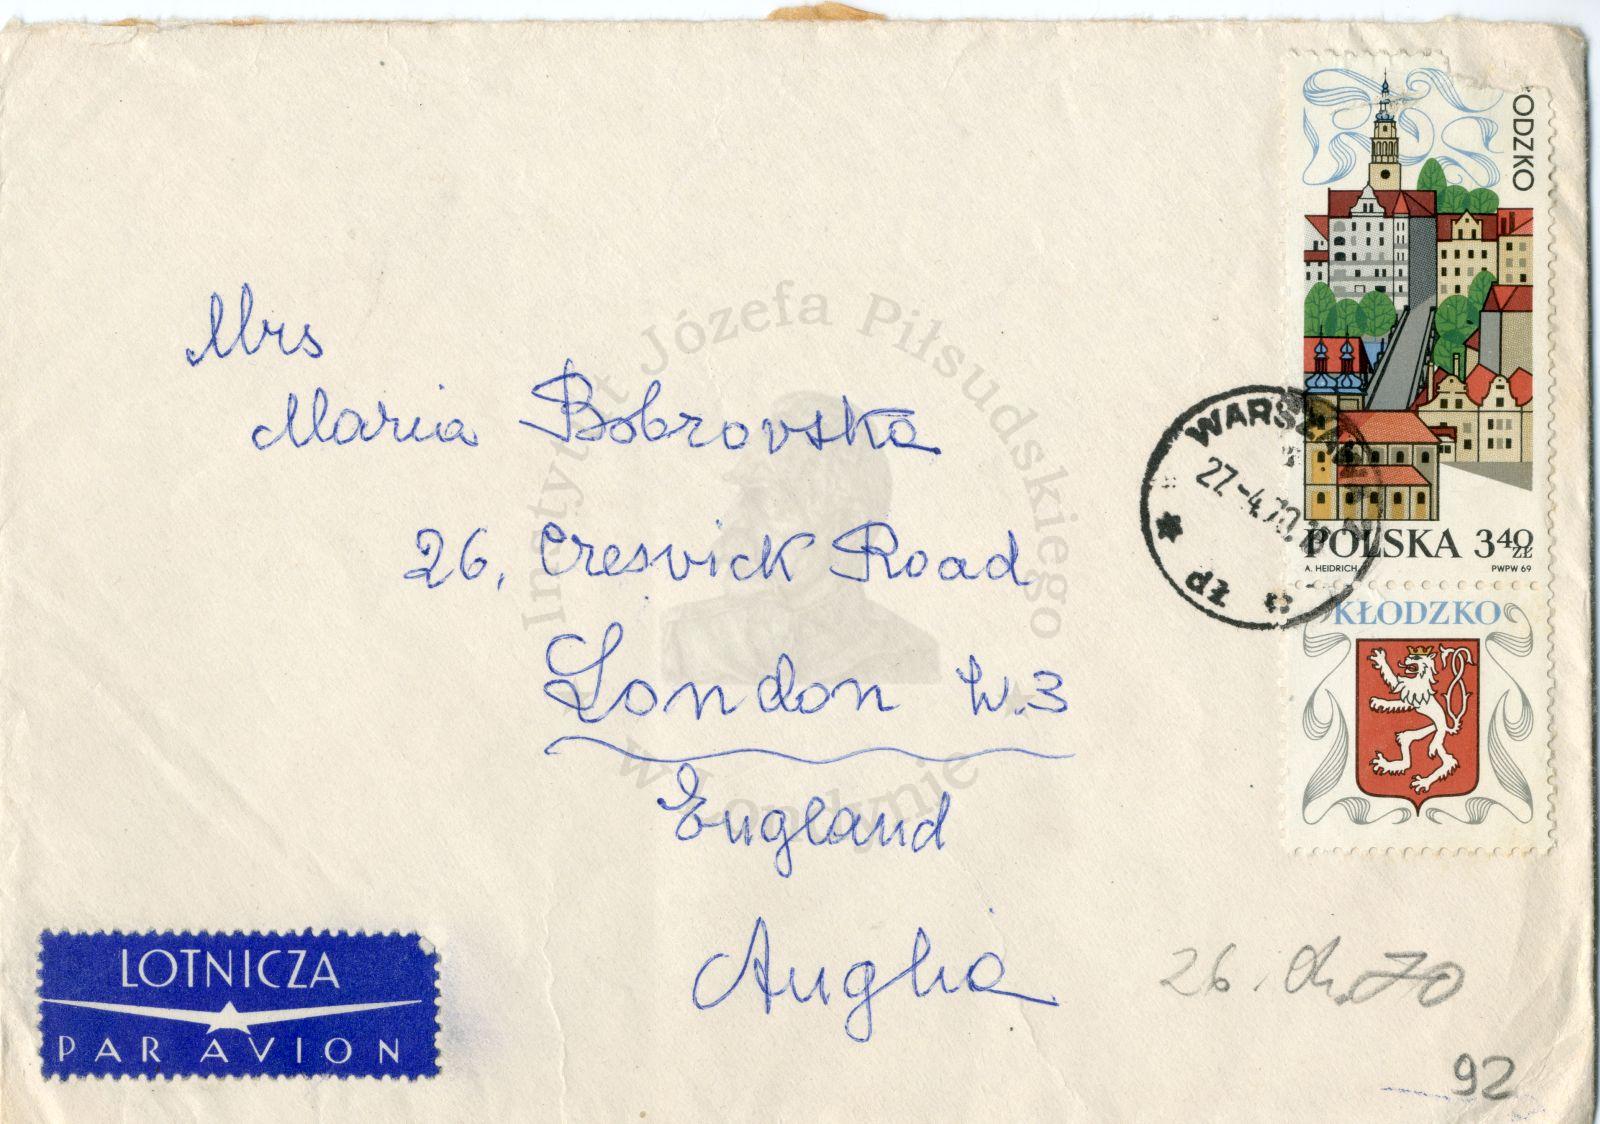 Mrs
Maria Bobrovska
26, Cresvick Road
London W.3
England
Anglia
ODZKO
POLSKA 3 40 ZŁ
A. HEIDRICH
PWPW 69
KŁODZKO
WARSZAWA
27.-4.70.
LOTNICZA
PAR AVION
26. 70
92
Instytut Józefa Piłsudskiego
w Londynie